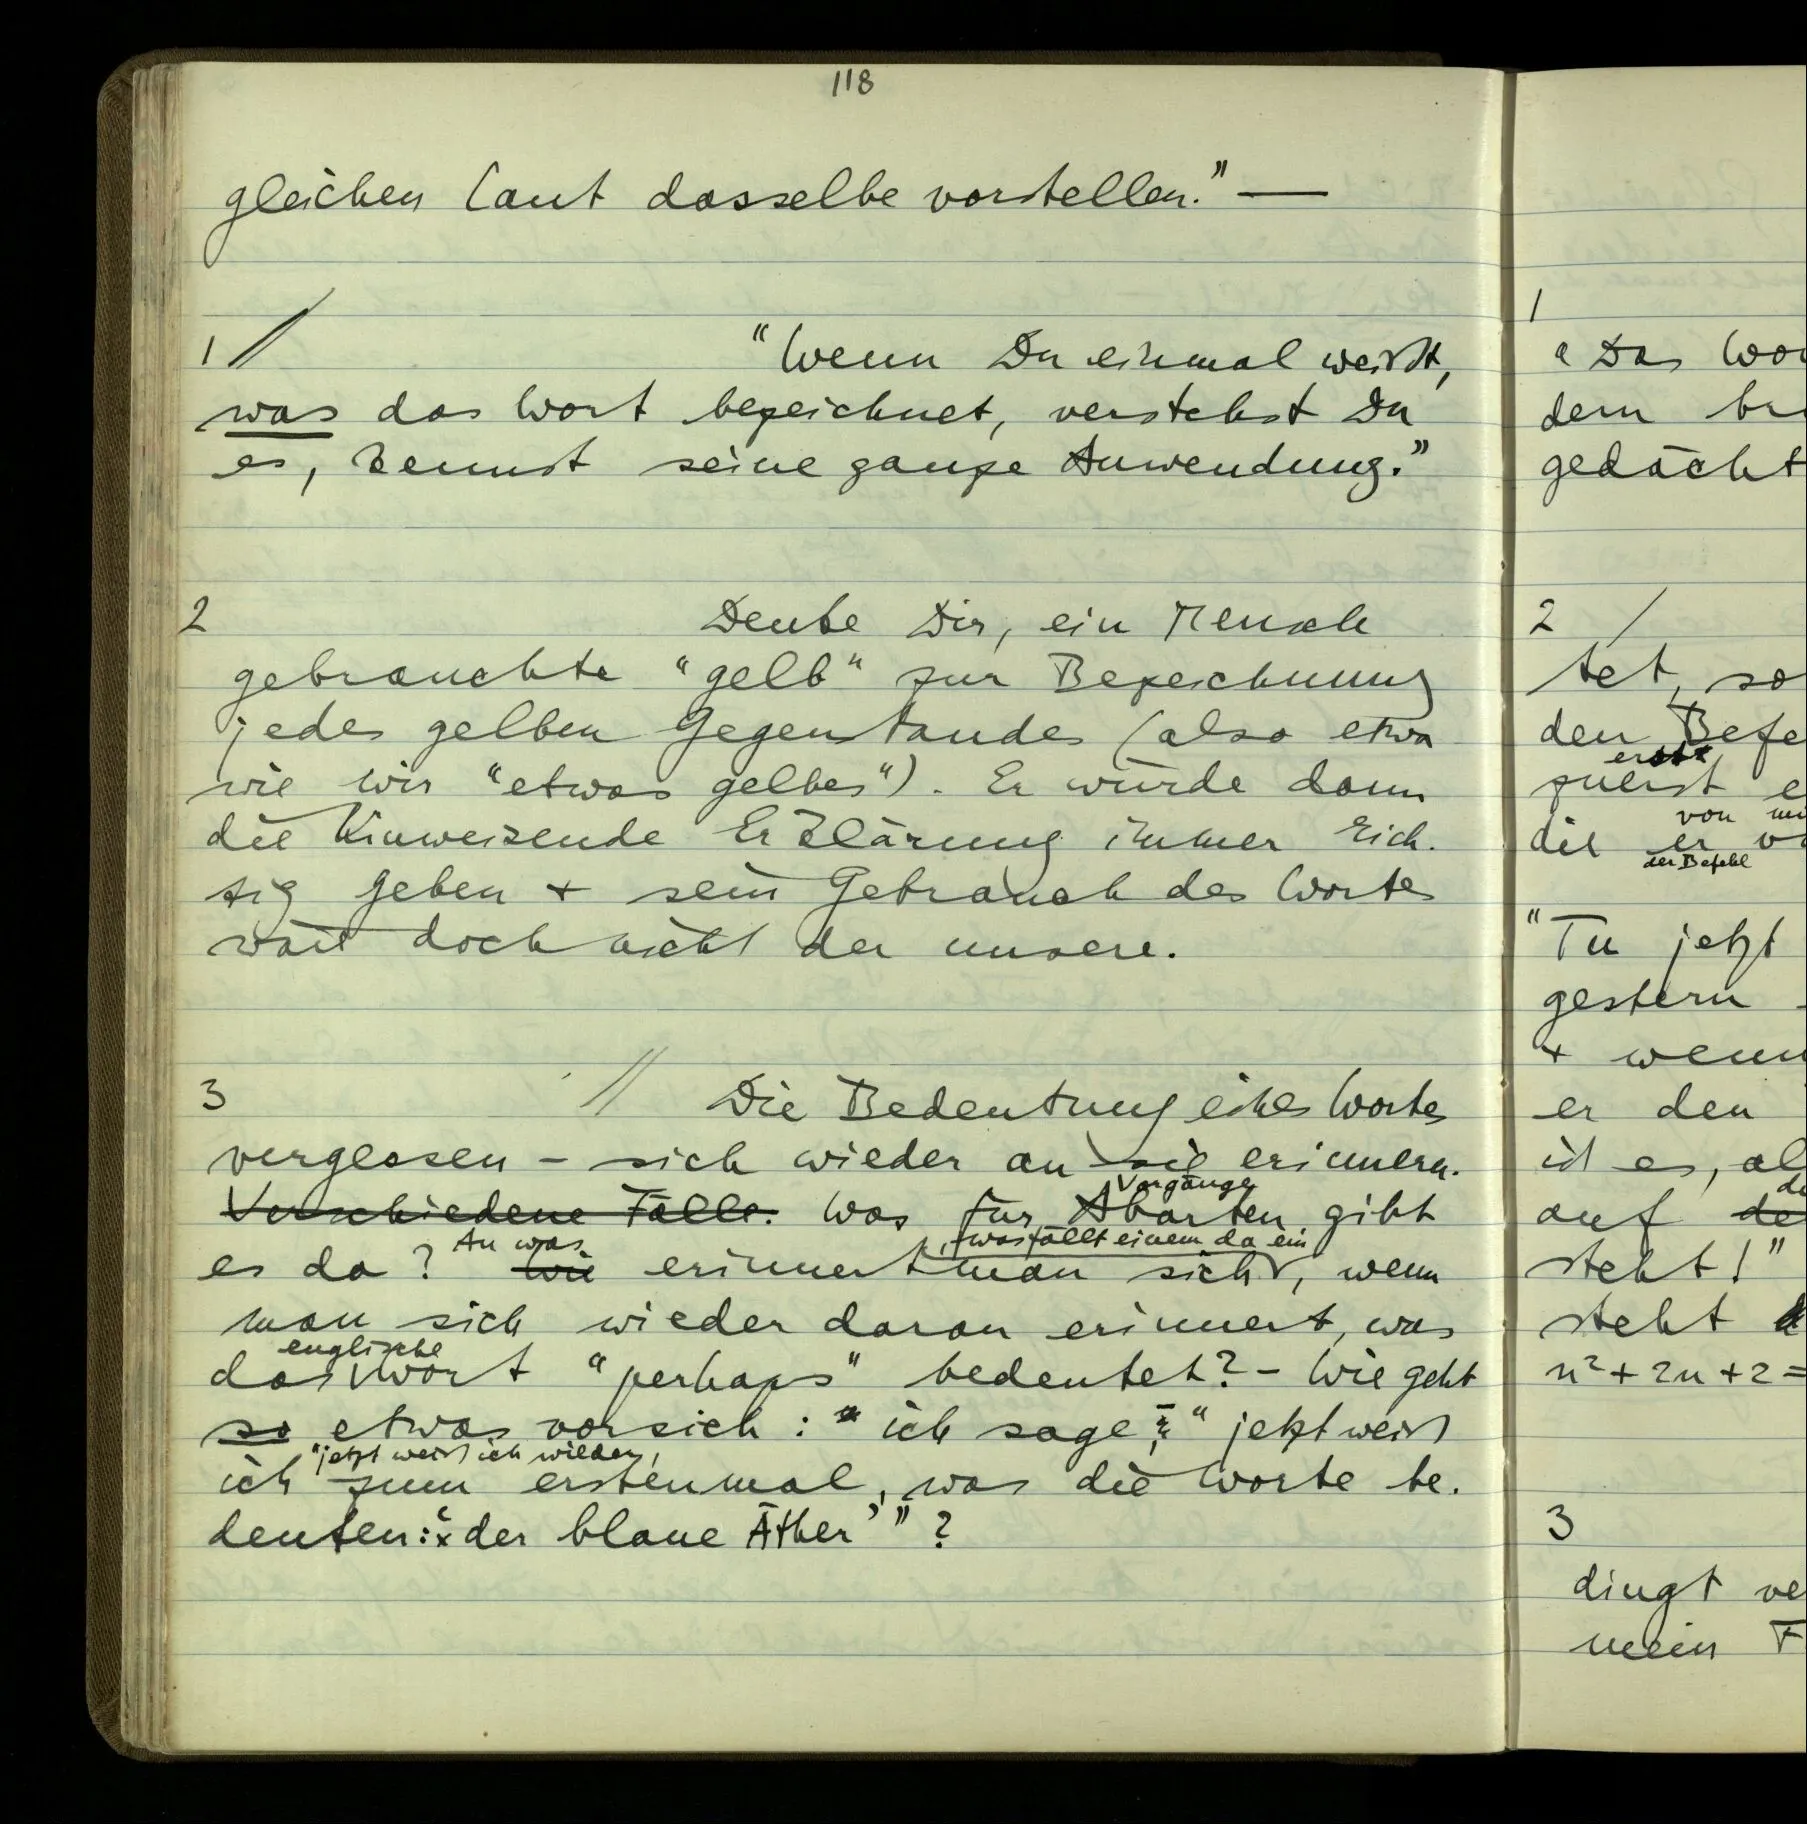 118
gleichen Laut dasselbe vorstellen." —
1 // "Wenn Du einmal weißt,
was das Wort bezeichnet, verstehst Du
es, kennst seine ganze Anwendung."
2 Denke Dir, ein Mensch
gebrauchte "gelb" zur Bezeichnung
jedes gelben Gegenstandes (also etwa
wie wir "etwas gelbes"). Er würde dann
die hinweisende Erklärung immer rich-
tig geben + sein Gebrauch des Wortes
wäre doch nicht der unsere.
3 // Die Bedeutung eines Wortes
vergessen – sich wieder an sie erinnern.
Vorgänge
Verschiedene Fälle. Was für Abarten gibt
An was, was fällt einem da ein
es da? Wie erinnert man sich, wenn
man sich wieder daran erinnert, was
englische
das Wort "perhaps" bedeutet? – Wie geht
so etwas vor sich: "ich sage, "jetzt weiß
"jetzt weiß ich wieder,
ich zum erstenmal, was die Worte be-
deuten: 'der blaue Äther' "?
1
"Das
dem
gedacht
2 /
tet, so
den
erst
zuerst
von
die er
der Befehl
"Tu jetzt
gestern
+ wenn
er den
ist es,
auf
steht!"
steht
n²+2n+2=
3
dingt
mein